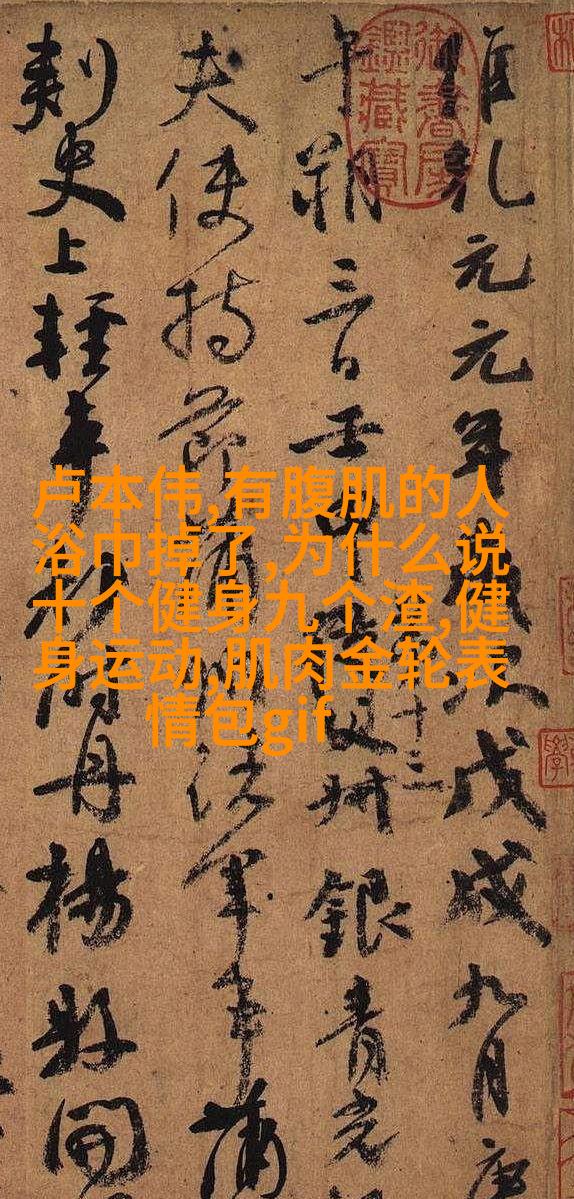 卢本伟,有腹肌的人
浴巾掉了,为什么说
十个健身九个渣,健
身运动,肌肉金轮表
情包gif
維乾元元年歲次戊戌九月庚
午朔三日壬申第十三叔銀青光
夫使持節蒲州諸軍事蒲
刺史上輕車都尉丹楊縣開
御書房鑑藏寶